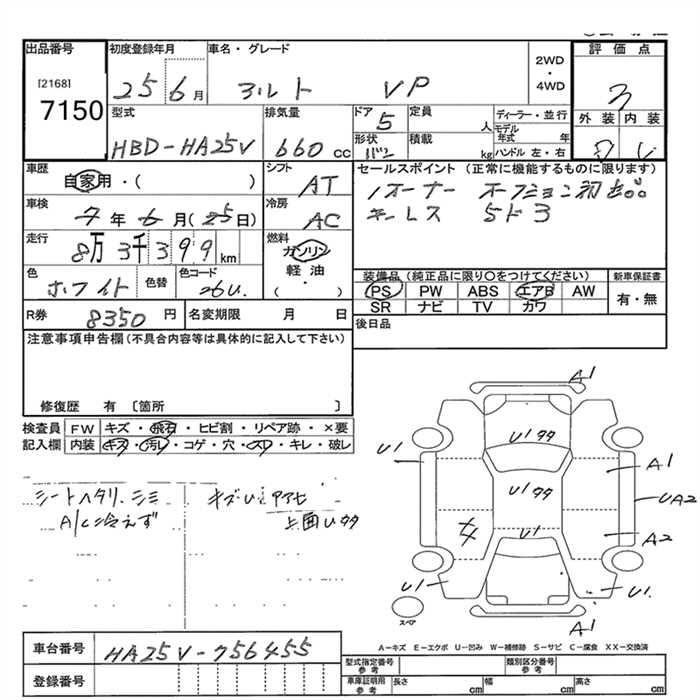 出品番号
[2168]
7150
初度登録年月
25 6月
車名・グレード
アルト VP
2WD
・
4WD
評価点
3
外装 内装
D
型式
HBD-HA25V
排気量
660 cc
ドア 5
形状 バン
定員 人
積載 kg
ディーラー・並行
モデル年式 年
ハンドル 左・右
車歴
自家用・( )
シフト
AT
車検
7年6月(25日)
冷房
AC
走行
8万3千399km
燃料
ガソリン
軽油
・
( )
色
ホワイト
色替
色コード
26U.
R券
8350円
名変期限 月 日
セールスポイント (正常に機能するものに限ります)
1オーナー
キーレス 5ドア
装備品(純正品に限り○をつけてください)
PS PW ABS エアB AW
SR ナビ TV カワ
新車保証書
有・無
後日品
注意事項申告欄(不具合内容等は具体的に記入して下さい)
修復歴 有 〔箇所 〕
検査員記入欄
FW キズ・飛石・ヒビ割・リペア跡・×要
内装 キズ・汚レ・コゲ・穴・スレ・キレ・破レ
シートヘタリ、シミ
A/C冷えず
キズU
上面Uタタ
A1
Uタタ
U1
A1
Uタタ
UA2
U1
A2
U1
U1
A1
スペア
A-キズ E-エクボ U-凹み W-補修跡 S-サビ C-腐食 XX-交換済
車台番号
HA25V-756455
登録番号
型式指定番号 参考
類別区分番号 参考
車庫証明用 参考
長さ cm 幅 cm 高さ cm